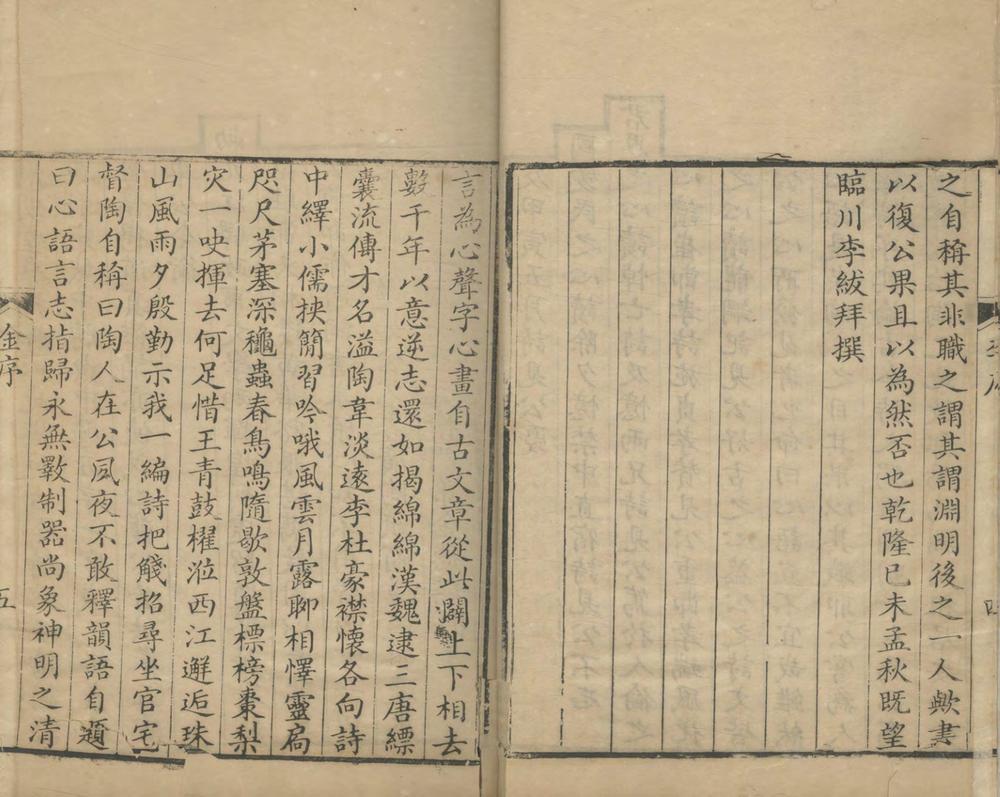 之自稱其非職之謂其謂淵明後之一人歟書
以復公果且以為然否也乾隆已未孟秋既望
臨川李紱拜撰
四
言為心聲字心畫自古文章從此闢上下相去
數千年以意逆志還如揭綿綿漢魏逮三唐縹
囊流傳才名溢陶韋淡遠李杜豪襟懷各向詩
中繹小儒挾簡習吟哦風雲月露聊相懌靈扃
咫尺茅塞深龝蟲春鳥鳴隨歇敦盤標榜棗梨
灾一吷揮去何足惜王青鼓櫂涖西江邂逅珠
山風雨夕殷勤示我一編詩把觴招尋坐官宅
督陶自稱曰陶人在公夙夜不敢釋韻語自題
曰心語言志指歸永無斁制器尚象神明之清
金序
五